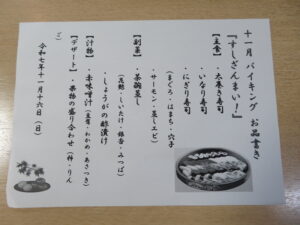 十一月 バイキング お品書き
『すしざんまい！』
【主食】
・太巻き寿司
・いなり寿司
・にぎり寿司
(まぐろ・はまち・穴子
・サーモン・蒸しエビ)
【副菜】
・茶碗蒸し
(花麩・しいたけ・銀杏・みつば)
・しょうがの酢漬け
【汁物】
・赤味噌汁(豆腐・わかめ・あさつき)
【デザート】・果物の盛り合わせ(柿・りん
ご)
令和七年十一月十六日(日)